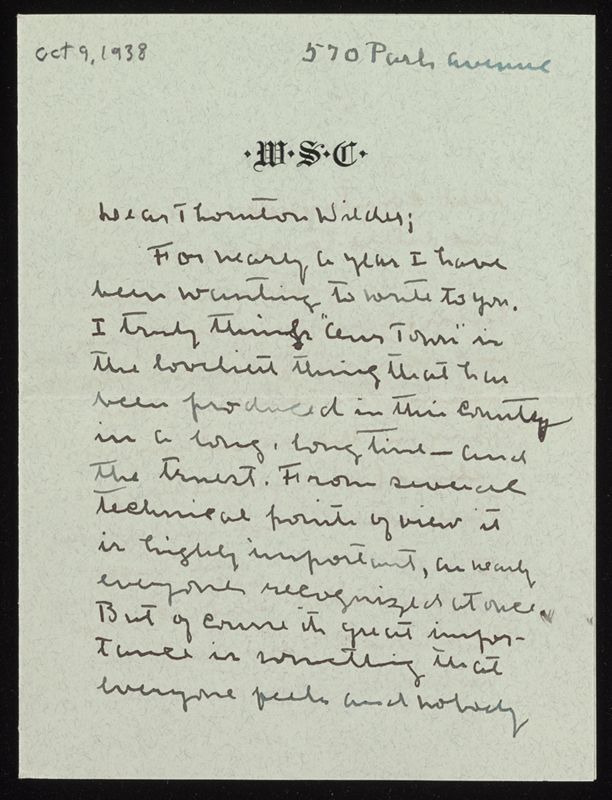 Oct 9, 1938
570 Park Avenue
·W·S·C·
Dear Thornton Wilder;
For nearly a year I have
been wanting to write to you.
I truly think "Our Town" is
the loveliest thing that has
been produced in this country
in a long, long time — and
the truest. From several
technical points of view it
is highly important, as nearly
everyone recognized at once.
But of course its great impor-
tance is something that
everyone feels and nobody